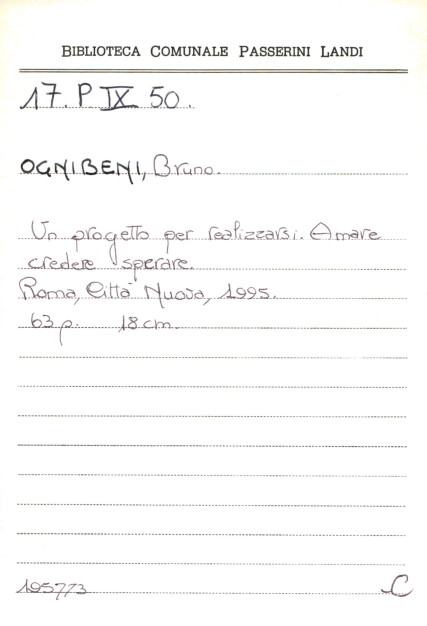 BIBLIOTECA COMUNALE PASSERINI LANDI
17. P IX 50.
OGNIBENI, Bruno.
Un progetto per realizzarsi. Amare
credere sperare.
Roma, Città Nuova, 1995.
63 p. 18 cm.
195773 C